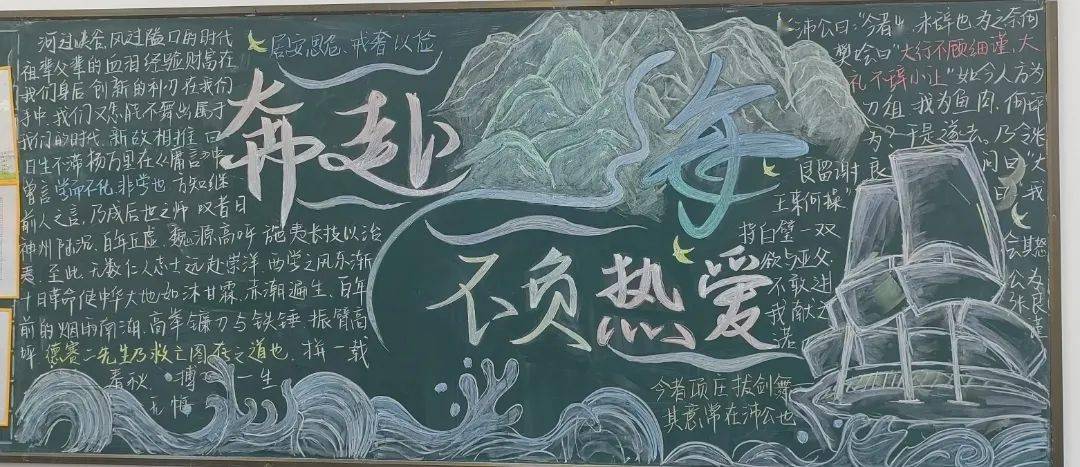 河过峡谷,风过隘口的时代
祖辈父辈的血泪经验财富在
我们身后 创新的利刃在我们
手中 我们又怎能不舞出属于
我们的时代 新故相推 日
日生不滞 扬万里在《庸言》中
曾言 学而不化 非学也 方知继
前人之言,乃成后世之师 叹昔日
神州陆沉,百年丘虚 魏源高呼 施夷长技以治
夷 至此 无数仁人志士远赴崇洋 西学之风东渐
十月革命使中华大地如沐甘霖,赤潮遍生,百年
前的烟雨南湖,高举镰刀与铁锤 振臂高
呼 德赛二先生乃救亡图存之道也 拼一载
春秋 搏 一生
无悔
居安思危、戒奢以俭
奔赴山海
不负热爱
沛公曰:"今者出,未辞也,为之奈何
樊哙曰"大行不顾细谨,大
礼不辞小让"如今人方为
刀俎 我为鱼肉,何辞
为?于是遂去,乃令张
良留谢 良问曰"大
王来何操"曰 我
持白璧一双
欲与亚父
不敢进
我献之
诺
会其怒
公为
张良
今者项庄拔剑舞
其意常在沛公也